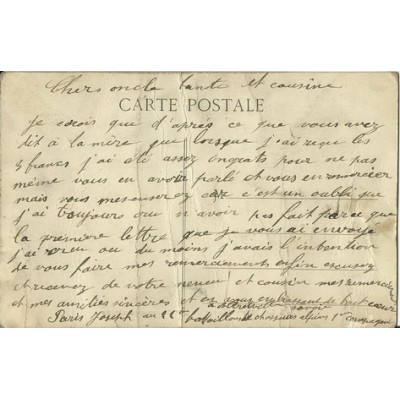 Chers oncle tante et cousine
CARTE POSTALE
Je crois que d'après ce que vous avez
dit à la mère que lorsque j'ai reçu les
5 francs j'ai été assez ingrats pour ne pas
même vous en avoir parlé et vous en remercier
mais vous m'excuserez car c'est un oubli que
j'ai toujours cru n'avoir pas fait parce que
la première lettre que je vous ai envoyé
j'ai cru ou du moins j'avais l'intention
de vous faire mes remerciements enfin excusez
et recevez de votre neveu et cousin mes remerciem
et mes amitiés sincères et en vous embrassant de tout cœur
Paris Joseph au 11e bataillon de chasseurs alpins 1re compagnie